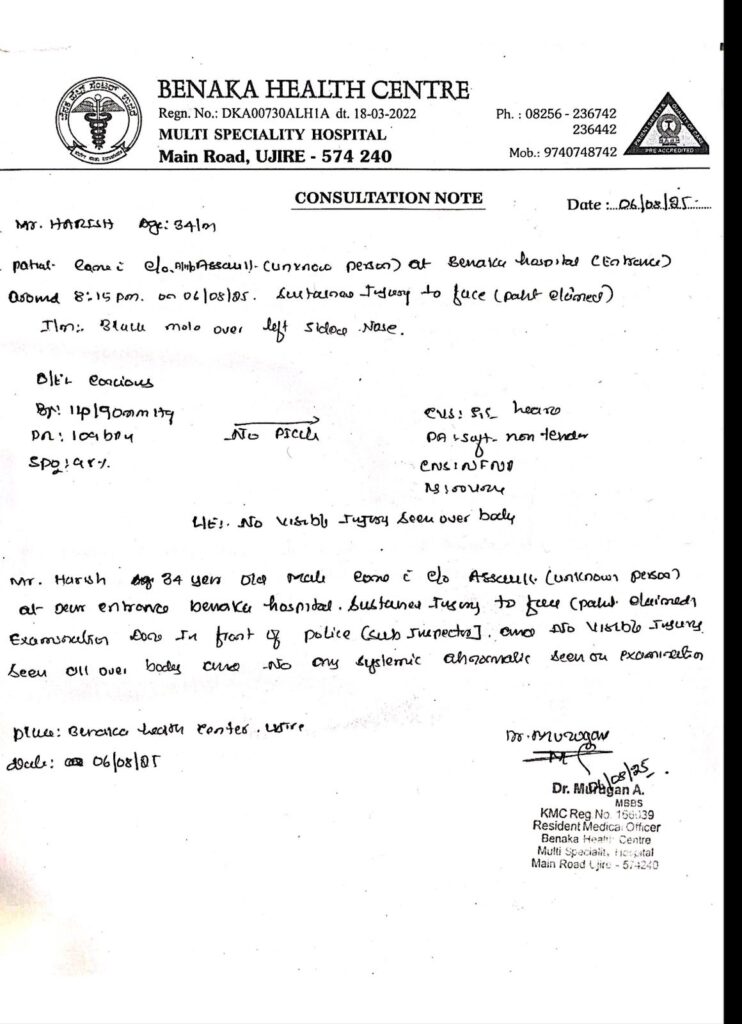 BENAKA HEALTH CENTRE
Regn. No.: DKA00730ALH1A dt. 18-03-2022
MULTI SPECIALITY HOSPITAL
Main Road, UJIRE - 574 240
Ph. : 08256 - 236742
236442
Mob.: 9740748742
PRE ACCREDITED
CONSULTATION NOTE
Date : 06/08/25
Mr. HARISH Age: 34/m
c/o Assault (unknow person) at Benaka hospital (Entrance)
around 8:15 pm. on 06/08/25. Sustained Injury to face (patit claimed)
Black mole over left side Nose.
O/E: Concious
mmHg
No
CVS: S1S2 heard
PA: soft non-tender
L/E: No visible Injury Seen over body
Mr. Harish age 34 year Old Male came c c/o Assault (unknown person)
at entrance benaka hospital. Sustained Injury to face (patit claimed)
Examination Done In front of police [Sub Inspector]. and No Visible Injury
Seen all over body and No any systemic seen on examination
place: Benaka health center. Ujire
date: 06/08/25
Dr. Murugan
06/08/25
Dr. Murugan A.
MBBS
KMC Reg No.
Resident Medical Officer
Benaka Health Centre
Multi Speciality Hospital
Main Road Ujire - 574240